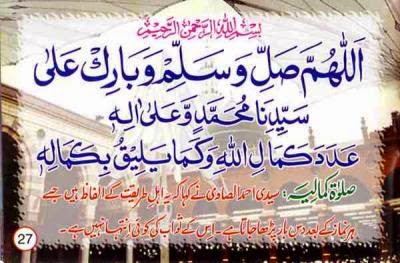 بِسْمِ اللهِ الرَّحْمٰنِ الرَّحِيْمِ
اَللّٰهُمَّ صَلِّ وَسَلِّمْ وَبَارِكْ عَلٰى
سَيِّدِنَا مُحَمَّدٍ وَّعَلٰى اٰلِهٖ
عَدَدَ كَمَالِ اللهِ وَكَمَا يَلِيْقُ بِكَمَالِهٖ
صلوٰۃ کمالیہ: سیدی احمد الصاوی نے کہا کہ یہ اہل طریقت کے الفاظ ہیں جسے
ہر نماز کے بعد دس بار پڑھا جاتا ہے۔ اس کے ثواب کی کوئی انتہا نہیں ہے۔
27